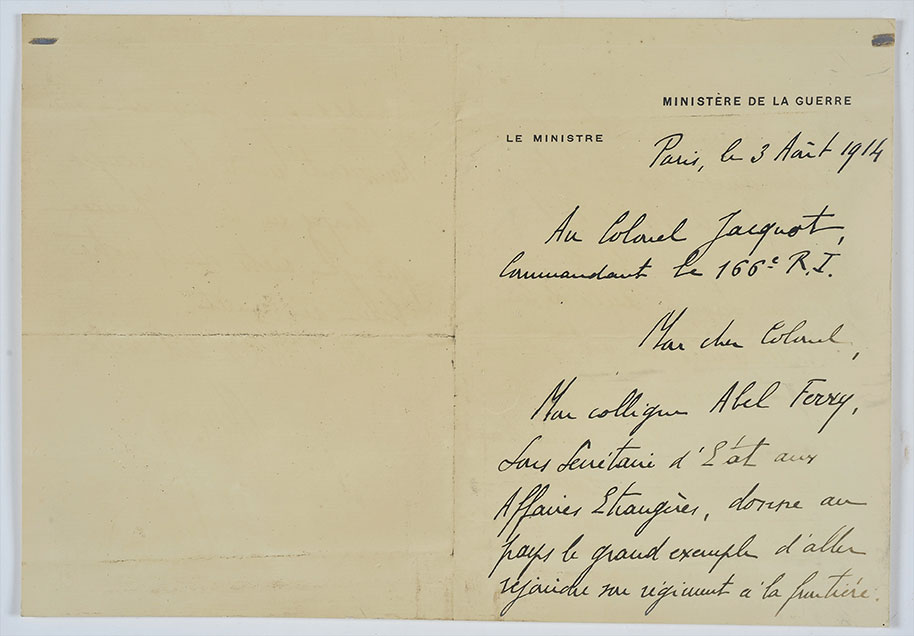 MINISTÈRE DE LA GUERRE
LE MINISTRE
Paris, le 3 Août 1914
Au Colonel Jacquot,
Commandant le 166e R.I.
Mon cher Colonel,
Mon collègue Abel Ferry,
Sous Secrétaire d'État aux
Affaires Etrangères, donne au
pays le grand exemple d'aller
rejoindre son régiment à la frontière.